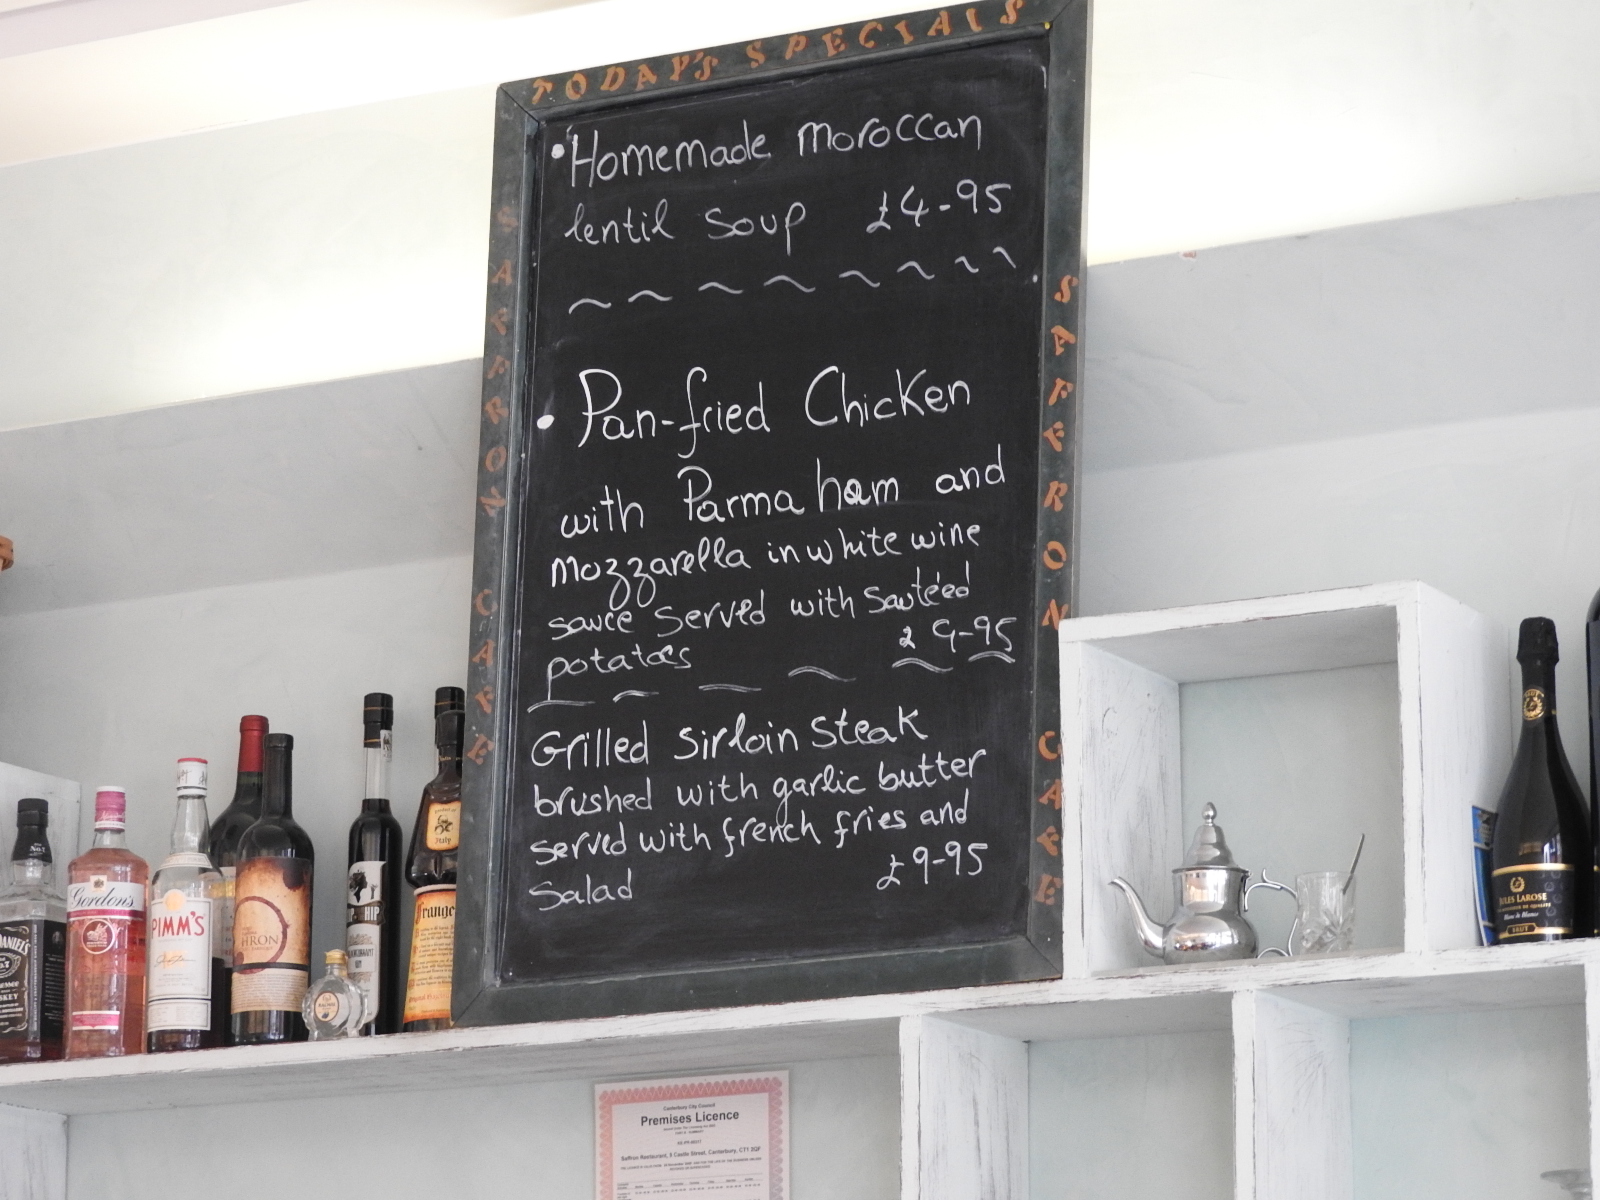 TODAY'S SPECIALS
SAFFRON CAFE
SAFFRON CAFE
• Homemade moroccan
lentil soup £4-95
• Pan-fried Chicken
with Parma ham and
mozzarella in white wine
sauce served with Sautéed
potatoes £9-95
Grilled Sirloin Steak
brushed with garlic butter
served with french fries and
Salad £9-95
DANIEL'S
Gordon's
PIMM'S
HRON
HIP
Italy
Orange
JULES LAROSE
Blanc de Blancs
BRUT
Canterbury City Council
Premises Licence
Saffron Restaurant, 5 Castle Street, Canterbury, CT1 2QF